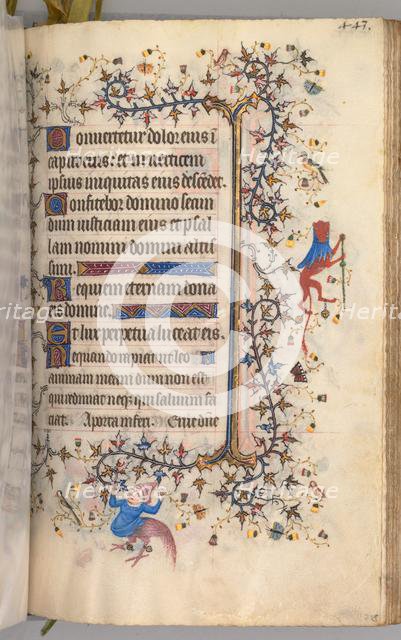 447.
Convertetur dolor eius i
caput eius: et in verticem
ipsius iniquitas eius descedet.
Confitebor domino secun
dum iusticiam eius et psal
lam nomini domini altis
simi.
Requiem eternam dona
domine.
Et lux perpetua luceat eis.
Nequando rapiat ut leo
animam meam dum non est
qui redimat neqz qui saluum fa
ciat. A porta inferi.
heritage-images.com